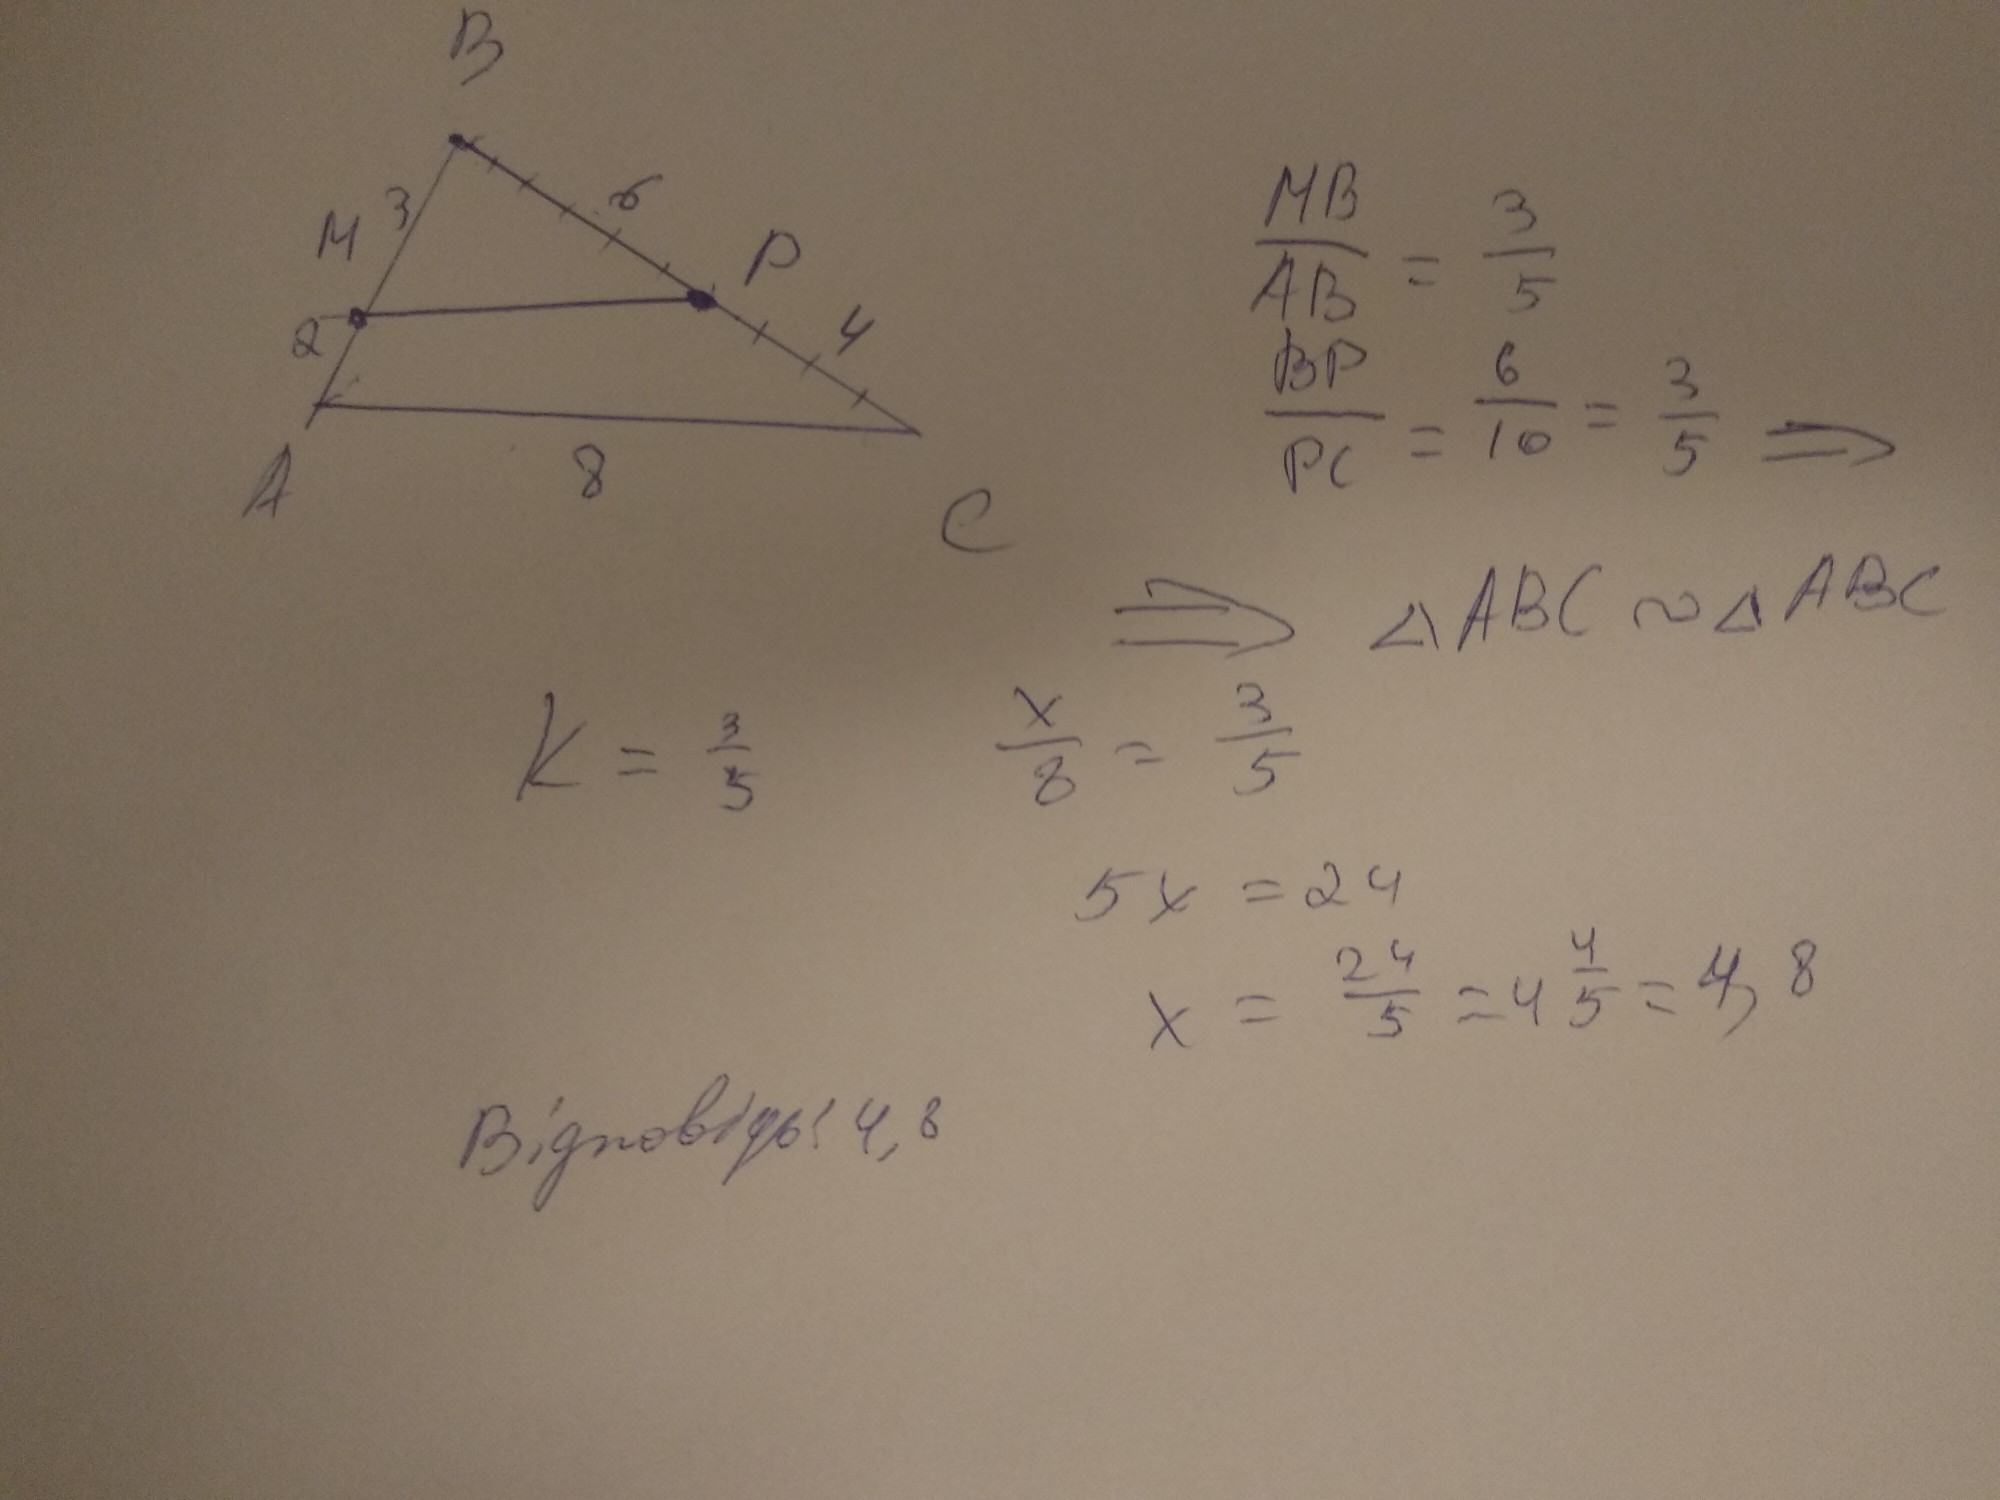 B
3
M
6
P
2
4
A
8
C
MB/AB = 3/5
BP/PC = 6/10 = 3/5 ⇒
⇒ △ABC ~ △ABC
K = 3/5
x/8 = 3/5
5x = 24
x = 24/5 = 4 4/5 = 4,8
Відповідь: 4,8